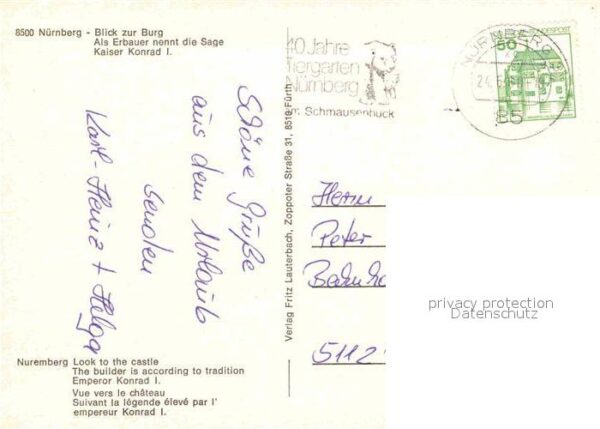 8500 Nürnberg - Blick zur Burg
Als Erbauer nennt die Sage
Kaiser Konrad I.
40 Jahre
Tiergarten
Nürnberg
am Schmausenbuck
NÜRNBERG
85
50
Schöne Grüße
aus dem Urlaub
senden
Karl-Heinz + Helga
Verlag Fritz Lauterbach, Zoppoter Straße 31, 8510 Fürth
Herrn
Peter
5112
privacy protection
Datenschutz
Nuremberg Look to the castle
The builder is according to tradition
Emperor Konrad I.
Vue vers le château
Suivant la légende élevé par l'
empereur Konrad I.